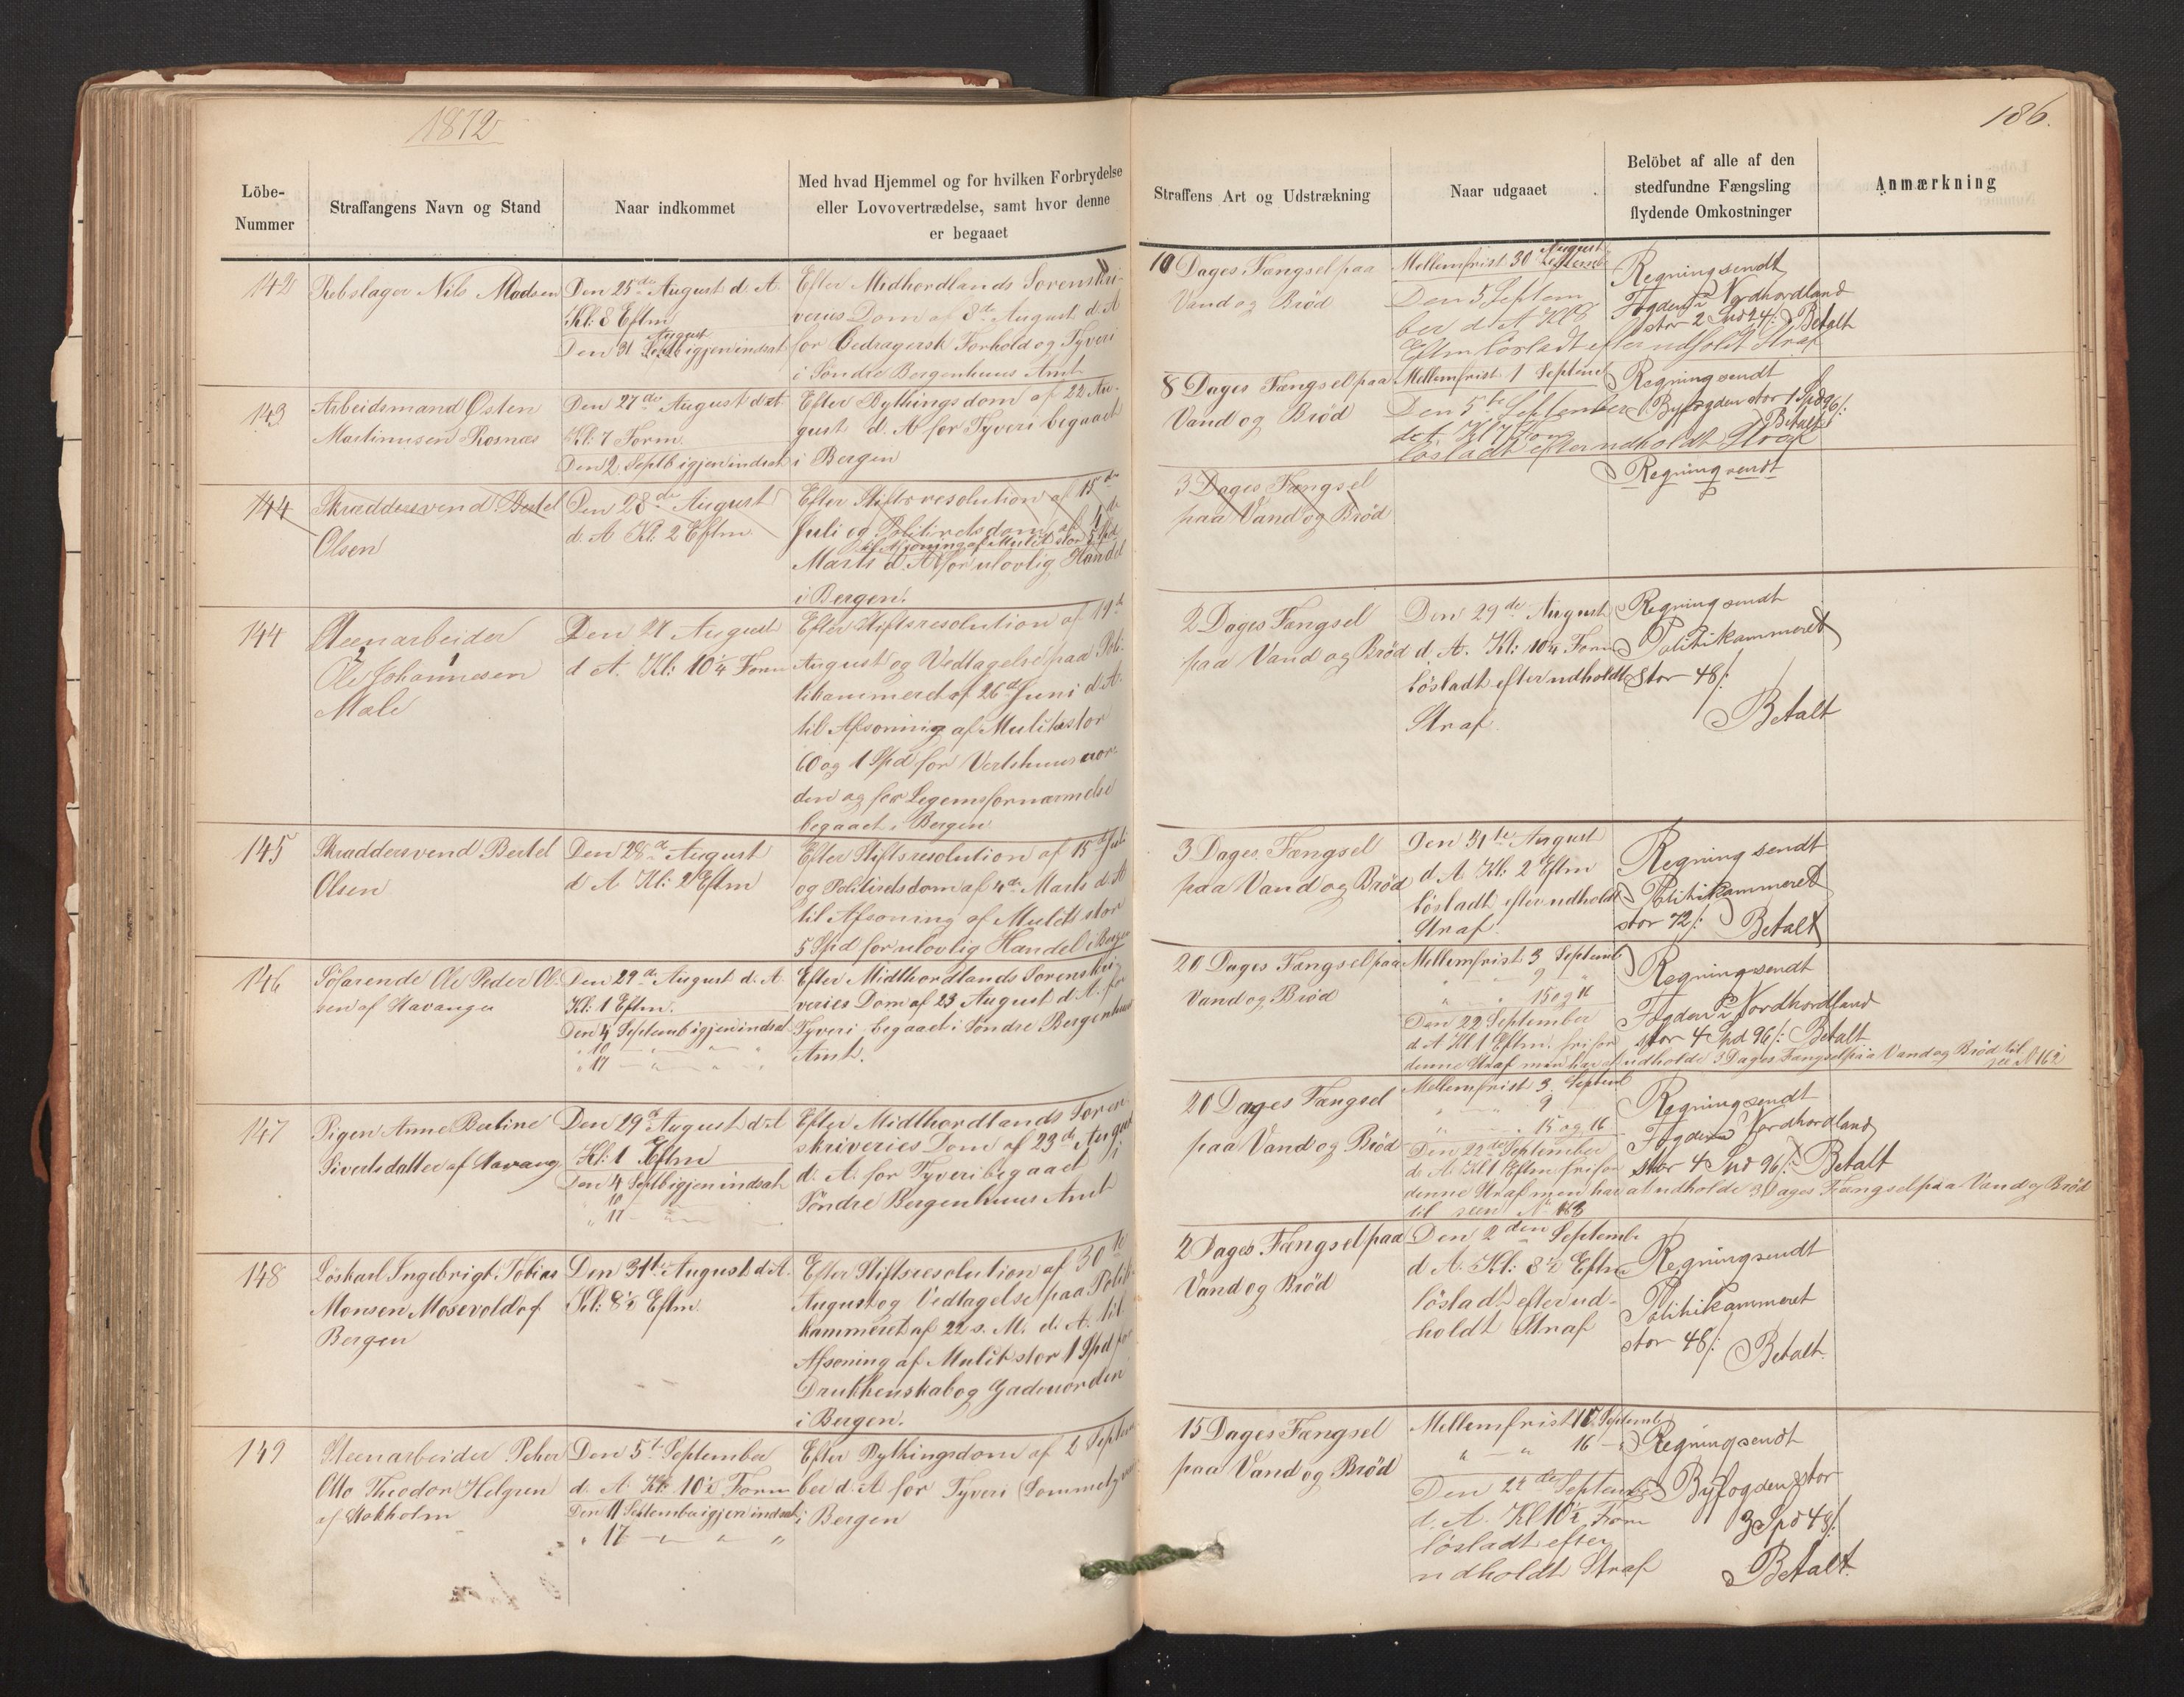 1872
186.
Löbe-
Nummer
Straffangens Navn og Stand
Naar indkommet
Med hvad Hjemmel og for hvilken Forbrydelse
eller Lovovertrædelse, samt hvor denne
er begaaet
Straffens Art og Udstrækning
Naar udgaaet
Belöbet af alle af den
stedfundne Fængsling
flydende Omkostninger
Anmærkning
142
Rebslager Nils Madsen
Den 25de August d. A.
Kl: 8 Eftm
August
Den 31 Septb igjen indsat
Efter Midhordlands Sorenskri-
veries Dom af 8de August d. A
for Bedragersk Forhold og Tyveri
i Søndre Bergenhuus Amt
10 Dages Fængsel paa
Vand og Bröd
August
Mellemfrist 30
Den 5 Septem
ber d. A Kl 8
Eftm lösladt efter udholdt Straf
Regning sendt
Fogden i Nordhordland
stor 2 Spd 24 /: Betalt
143
Arbeidsmand Østen
Martinusen Rosnæs
Den 27de August d. A
Kl: 7 Form.
Den 2. Septb igjen indsat
Efter Bythingsdom af 22 Au-
gust d. A for Tyveri begaaet
i Bergen
8 Dages Fængsel paa
Vand og Bröd
Mellemfrist 1 Septem
Den 5te September
d. A. Kl 7 Form
lösladt efter udholdt Straf
Regning sendt
Byfogden stor 1 Spd 96 /:
Betalt
144
Skræddersvend Bertel
Olsen
Den 28de August
d. A Kl: 2 Eftm
Efter Stiftsresolution af 15de
Juli og Politiretsdom af 4de
til Afsoning af Mulct stor 5 Spd
Marts d. A for ulovlig Handel
i Bergen.
3 Dages Fængsel
paa Vand og Bröd
Regning sendt
144
Steenarbeider
2 1
Ole Johannesen
Male
Den 27 August
d A. Kl: 10¼ Form
Efter Stiftsresolution af 19de
August og Vedtagelse paa Poli-
tikammeret af 26de Juni d. A.
til Afsoning af Mulcter stor
60 og 1 Spd for Vertshuusuor-
den og for Legemsfornærmelse
begaaet i Bergen
2 Dages Fængsel
paa Vand og Bröd
Den 29de August
d. A. Kl: 10¼ Form
lösladt efter udholdt
Straf
Regning sendt
Politikammeret
stor 48 /:
Betalt
145
Skræddersvend Bertel
Olsen
Den 28de August
d A Kl: 2 Eftm
Efter Stiftsresolution af 15de Juli
og Politiretsdom af 4de Marts d. A
til Afsoning af Mulct stor
5 Spd for ulovlig Handel i Bergen
3 Dages Fængsel
paa Vand og Bröd
Den 31te August
d. A. Kl: 2 Eftm
lösladt efter udholdt
Straf.
Regning sendt
Politikammeret
stor 72 /: Betalt
146
Söfarende Ole Peder Ol-
sen af Stavanger
Den 29de August d. A
Kl: 1 Eftm.
Den 4 Septemb igjen indsat
" 10 — " — " — "
" 17 — " — " — "
Efter Midthordlands Sorenskri-
veries Dom af 23 August d. A. for
Tyveri begaaet i Søndre Bergenhuus
Amt.
20 Dages Fængsel paa
Vand og Bröd
Mellemfrist 3 Septemb
" — " 9 "
" — " 15 og 16
Den 22 September
d. A Kl 1 Eftm. fri for
denne Straf men har at udholde 3 Dages Fængsel paa Vand og Bröd til
see N 162
Regning sendt
Fogden i Nordhordland
stor 4 Spd 96 /: Betalt
147
Pigen Anne Bertine
Sivertsdatter af Stavang
Den 29de August d. A
Kl: 1 Eftm
Den 4 Septb igjen indsat
" 10 — " —
" 17 — " —
Efter Midthordlands Soren
skriveries Dom af 23de August
d. A. for Tyveri begaaet i
Söndre Bergenhuus Amt
20 Dages Fængsel
paa Vand og Bröd
Mellemfrist 3. Septemb
" — " 9
" — " 15 og 16
Den 22de September
d. A. Kl 1 Eftm fri for
denne Straf men har at udholde 3 Dages Fængsel paa Vand og Bröd
til seen N 163
Regning sendt
Fogden i Nordhordland
stor 4 Spd 96 /: Betalt
148
Löskarl Ingebrigt Tobias
Monsen Mosevold af
Bergen
Den 31te August d. A.
Kl: 8½ Eftm.
Efter Stiftsresolution af 30te
August og Vedtagelse paa Politi-
kammeret af 22 s. M. d. A. til
Afsoning af Mulct stor 1 Spd for
Drukkenskab og Gadeuorden
i Bergen.
2 Dages Fængsel paa
Vand og Bröd
Den 2den Septembr
d. A. Kl: 8½ Eftm
lösladt efter ud-
holdt Straf
Regning sendt
Politikammeret
stor 48 /:
Betalt.
149
Steenarbeider Peter
Otto Theodor Helgren
af Stokholm
Den 5te September
d. A. Kl: 10½ Form
Den 11 September igjen indsat
" 17 — " — " "
Efter Bythingsdom af 2 Septem
ber d. A for Tyveri (Lommetyveri
i Bergen
15 Dages Fængsel
paa Vand og Bröd
Mellemfrist 10 Septemb
" — " 16 — "
Den 22de September
d. A. Kl 10½ Form
lösladt efter
udholdt Straf
Regning sendt
Byfogden stor
3 Spd 48 /:
Betalt.